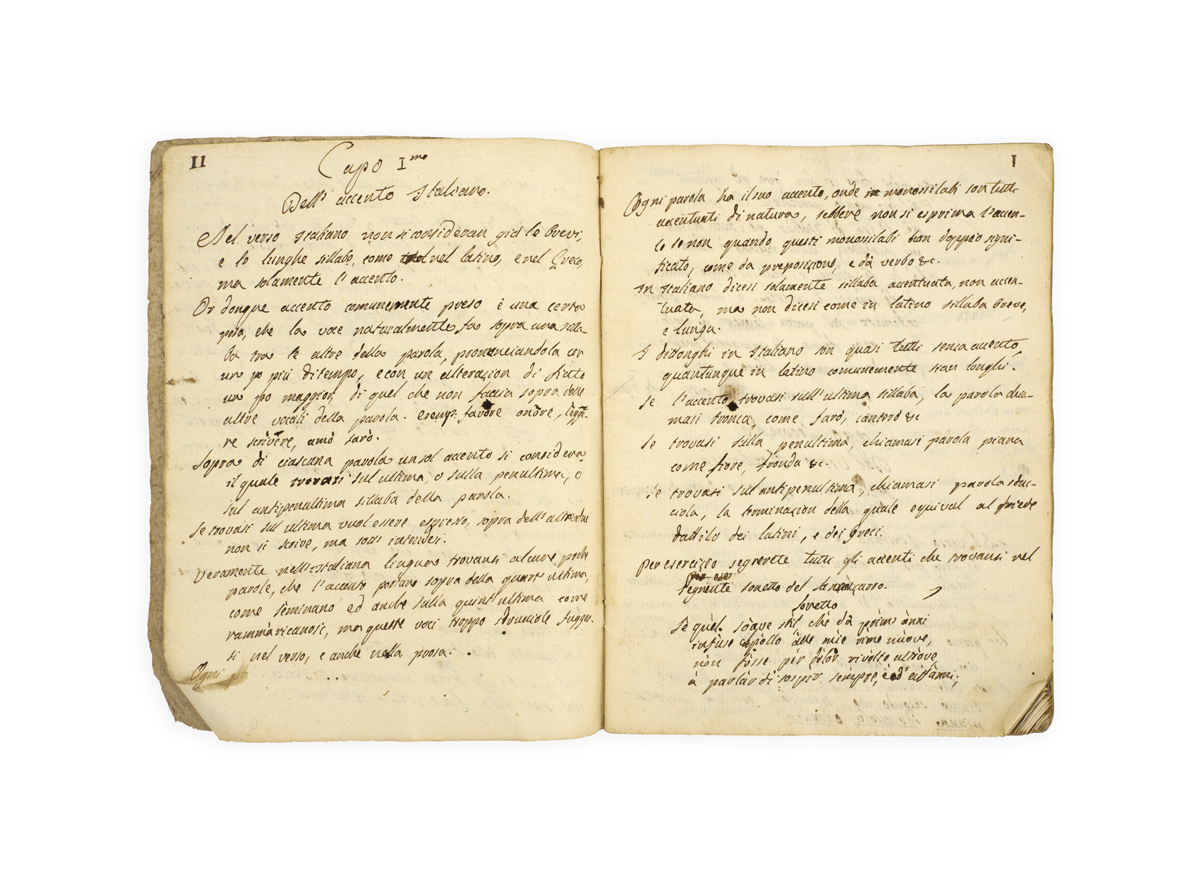 II
Capo I.mo
Dell' accento Italiano.
Nel verso Italiano non si consideran già le brevi,
e le lunghe sillabe, come nel latino, e nel Greco,
ma solamente l'accento.
Or donque accento comunemente preso è una certa
posa, che la voce naturalmente fa sopra una silla-
ba tra le altre della parola, pronunciandola con
un po più di tempo, e con un alterazion di fiato
un po maggior, di quel che non faccia sopra delle
altre vocali della parola. esemp: favóre onóre, légge-
re scrívere, amò sarò.
Sopra di ciascuna parola un sol accento si considera,
il quale trovasi sul ultima, o sulla penultima, o
sul antipenultima sillaba della parola.
Se trovasi sul ultima vuol essere espresso, sopra dell'altre due
non si scrive, ma
Veramente nell'Italiana lingua trovansi alcune poche
parole, che l'accento portano sopra della quart'ultima,
come séminano ed anche sulla quint'ultima come
rammáricanosi, ma queste voci troppo sdrucciole fuggon-
si nel verso, e anche nella prosa.
Ogni
I
Ogni parola ha il suo accento, onde i monosilabi son tutti
accentuati di natura, sebbene non si esprima l'accen-
to se non quando questi monosilabi han doppio signi-
ficato, come da preposizione, e dà verbo &c.
In Italiano dicesi solamente sillaba accentuata, non accen-
tuata, ma non dicesi come in latino sillaba breve,
e lunga.
I dittonghi in Italiano son quasi tutti senza accento,
quantunque in latino comunemente sian lunghi.
Se l'accento trovasi sull'ultima sillaba, la parola chia-
masi tronca, come farò, canterò &c
Se trovasi sulla penultima, chiamasi parola piana
come fiore, fronda &c.
Se trovasi sul antipenultima, chiamasi parola sdruc-
ciola, la terminazion della quale equival al piede
dattilo dei latini, e dei Greci.
Per esercizio segnerete tutti gli accenti che trovansi nel
seguente sonetto del
Sonetto
Se quèl sòave stil, chè dà primi ànni
infùse Apòllo àlle mie rime nuòve,
nòn fòsse pèr dolòr rivòlto altròve
à parlàr di sospìr sèmpre, è d'affànni,